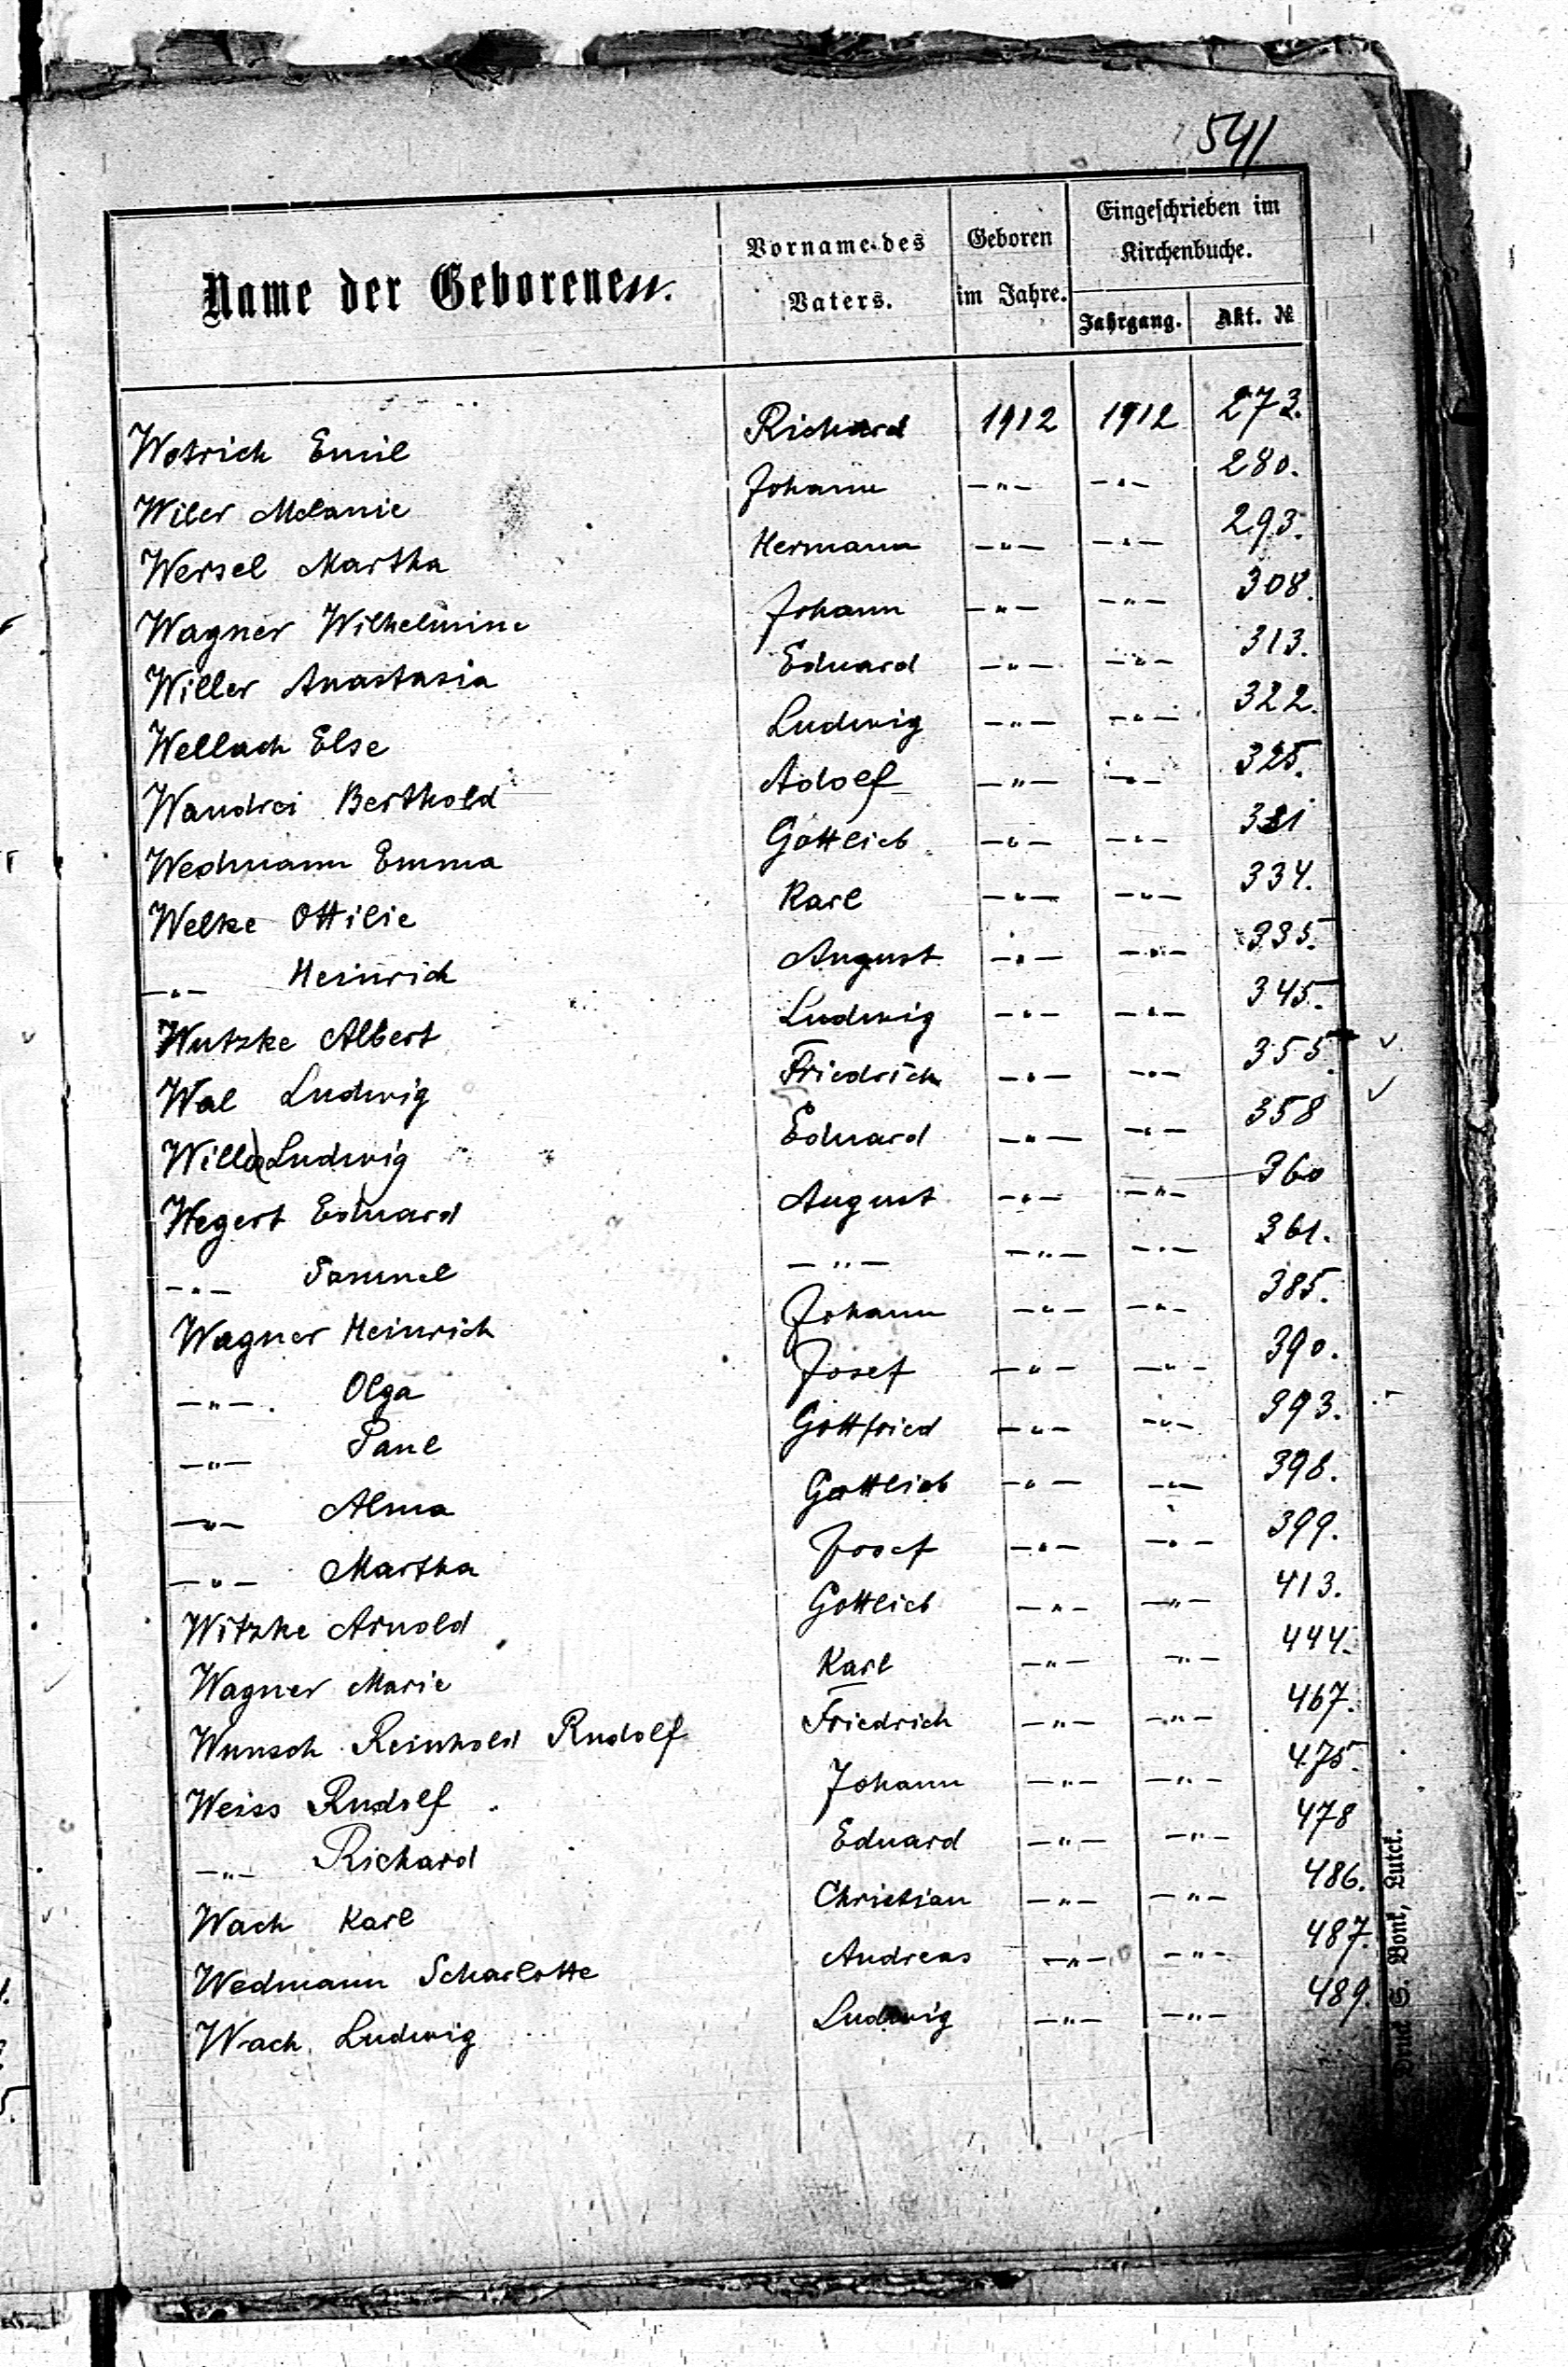 541
Name der Geborenen.
Vorname des Vaters.
Geboren im Jahre.
Eingeschrieben im Kirchenbuche.
Jahrgang. Akt. №
Wotrich Emil Richard 1912 1912 273.
Wiler Melanie Johann -"- -"- 280.
Wersel Martha Hermann -"- -"- 293.
Wagner Wilhelmine Johann -"- -"- 308.
Willer Anastasia Eduard -"- -"- 313.
Wellach Else Ludwig -"- -"- 322.
Wandrei Berthold Adolf -"- -"- 325.
Wedmann Emma Gottlieb -"- -"- 331
Welke Ottilie Karl -"- -"- 334.
-"- Heinrich August -"- -"- 335.
Wutzke Albert Ludwig -"- -"- 345.
Wal Ludwig Friedrich -"- -"- 355.
Willa Ludwig Eduard -"- -"- 358
Wegert Eduard August -"- -"- 360
-"- Samuel -"- -"- -"- 361.
Wagner Heinrich Johann -"- -"- 385.
-"-. Olga Josef -"- -"- 390.
-"- Paul Gottfried -"- -"- 393.
-"- Alma Gottlieb -"- -"- 398.
-"- Martha Josef -"- -"- 399.
Witzke Arnold Gottlieb -"- -"- 413.
Wagner Marie Karl -"- -"- 444.
Wunsch Reinhold Rudolf Friedrich -"- -"- 467.
Weiss Rudolf Johann -"- -"- 475.
-"- Richard Eduard -"- -"- 478
Wach Karl Christian -"- -"- 486.
Wedmann Scharlotte Andreas -"- -"- 487.
Wach Ludwig Ludwig -"- -"- 489.
Druck S. Bonk, Lutck.